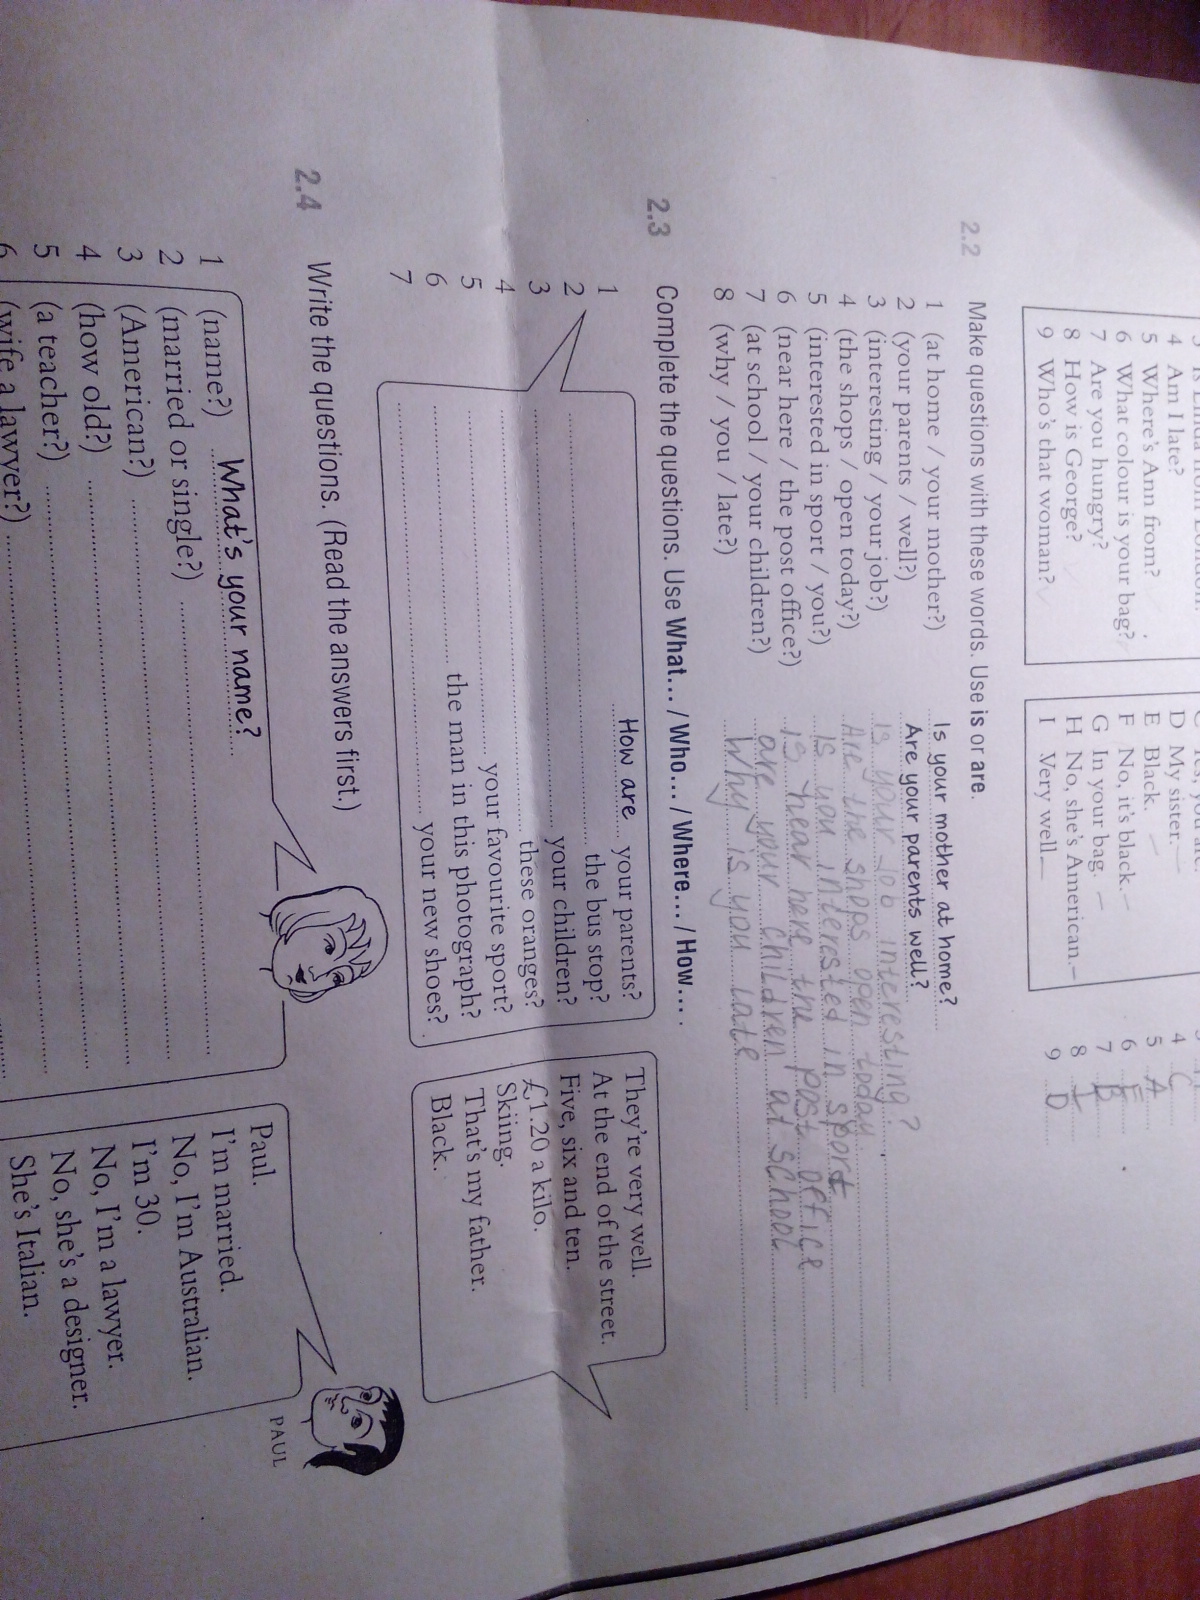 4 Am I late?
5 Where's Ann from?
6 What colour is your bag?
7 Are you hungry?
8 How is George?
9 Who's that woman?
D My sister.
E Black.
F No, it's black.
G In your bag.
H No, she's American.
I Very well.
4 C
5 A
6 E
7 B
8 I
9 D
2.2 Make questions with these words. Use is or are.
1 (at home / your mother?) Is your mother at home?
2 (your parents / well?) Are your parents well?
3 (interesting / your job?) Is your job interesting?
4 (the shops / open today?) Are the shops open today
5 (interested in sport / you?) Is you interested in sport
6 (near here / the post office?) is near here the post office
7 (at school / your children?) are your children at school
8 (why / you / late?) Why is you late
2.3 Complete the questions. Use What... / Who... / Where... / How... .
1 How are your parents? They're very well.
2 the bus stop? At the end of the street.
3 your children? Five, six and ten.
4 these oranges? £1.20 a kilo.
5 your favourite sport? Skiing.
6 the man in this photograph? That's my father.
7 your new shoes? Black.
2.4 Write the questions. (Read the answers first.)
1 (name?) What's your name? Paul.
2 (married or single?) I'm married.
3 (American?) No, I'm Australian.
4 (how old?) I'm 30.
5 (a teacher?) No, I'm a lawyer.
6 (wife a lawyer?) No, she's a designer.
She's Italian.
PAUL